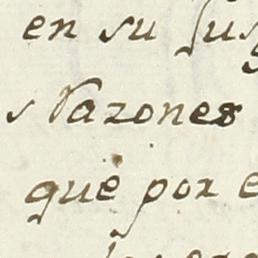 en su sus
s Razones
que por e